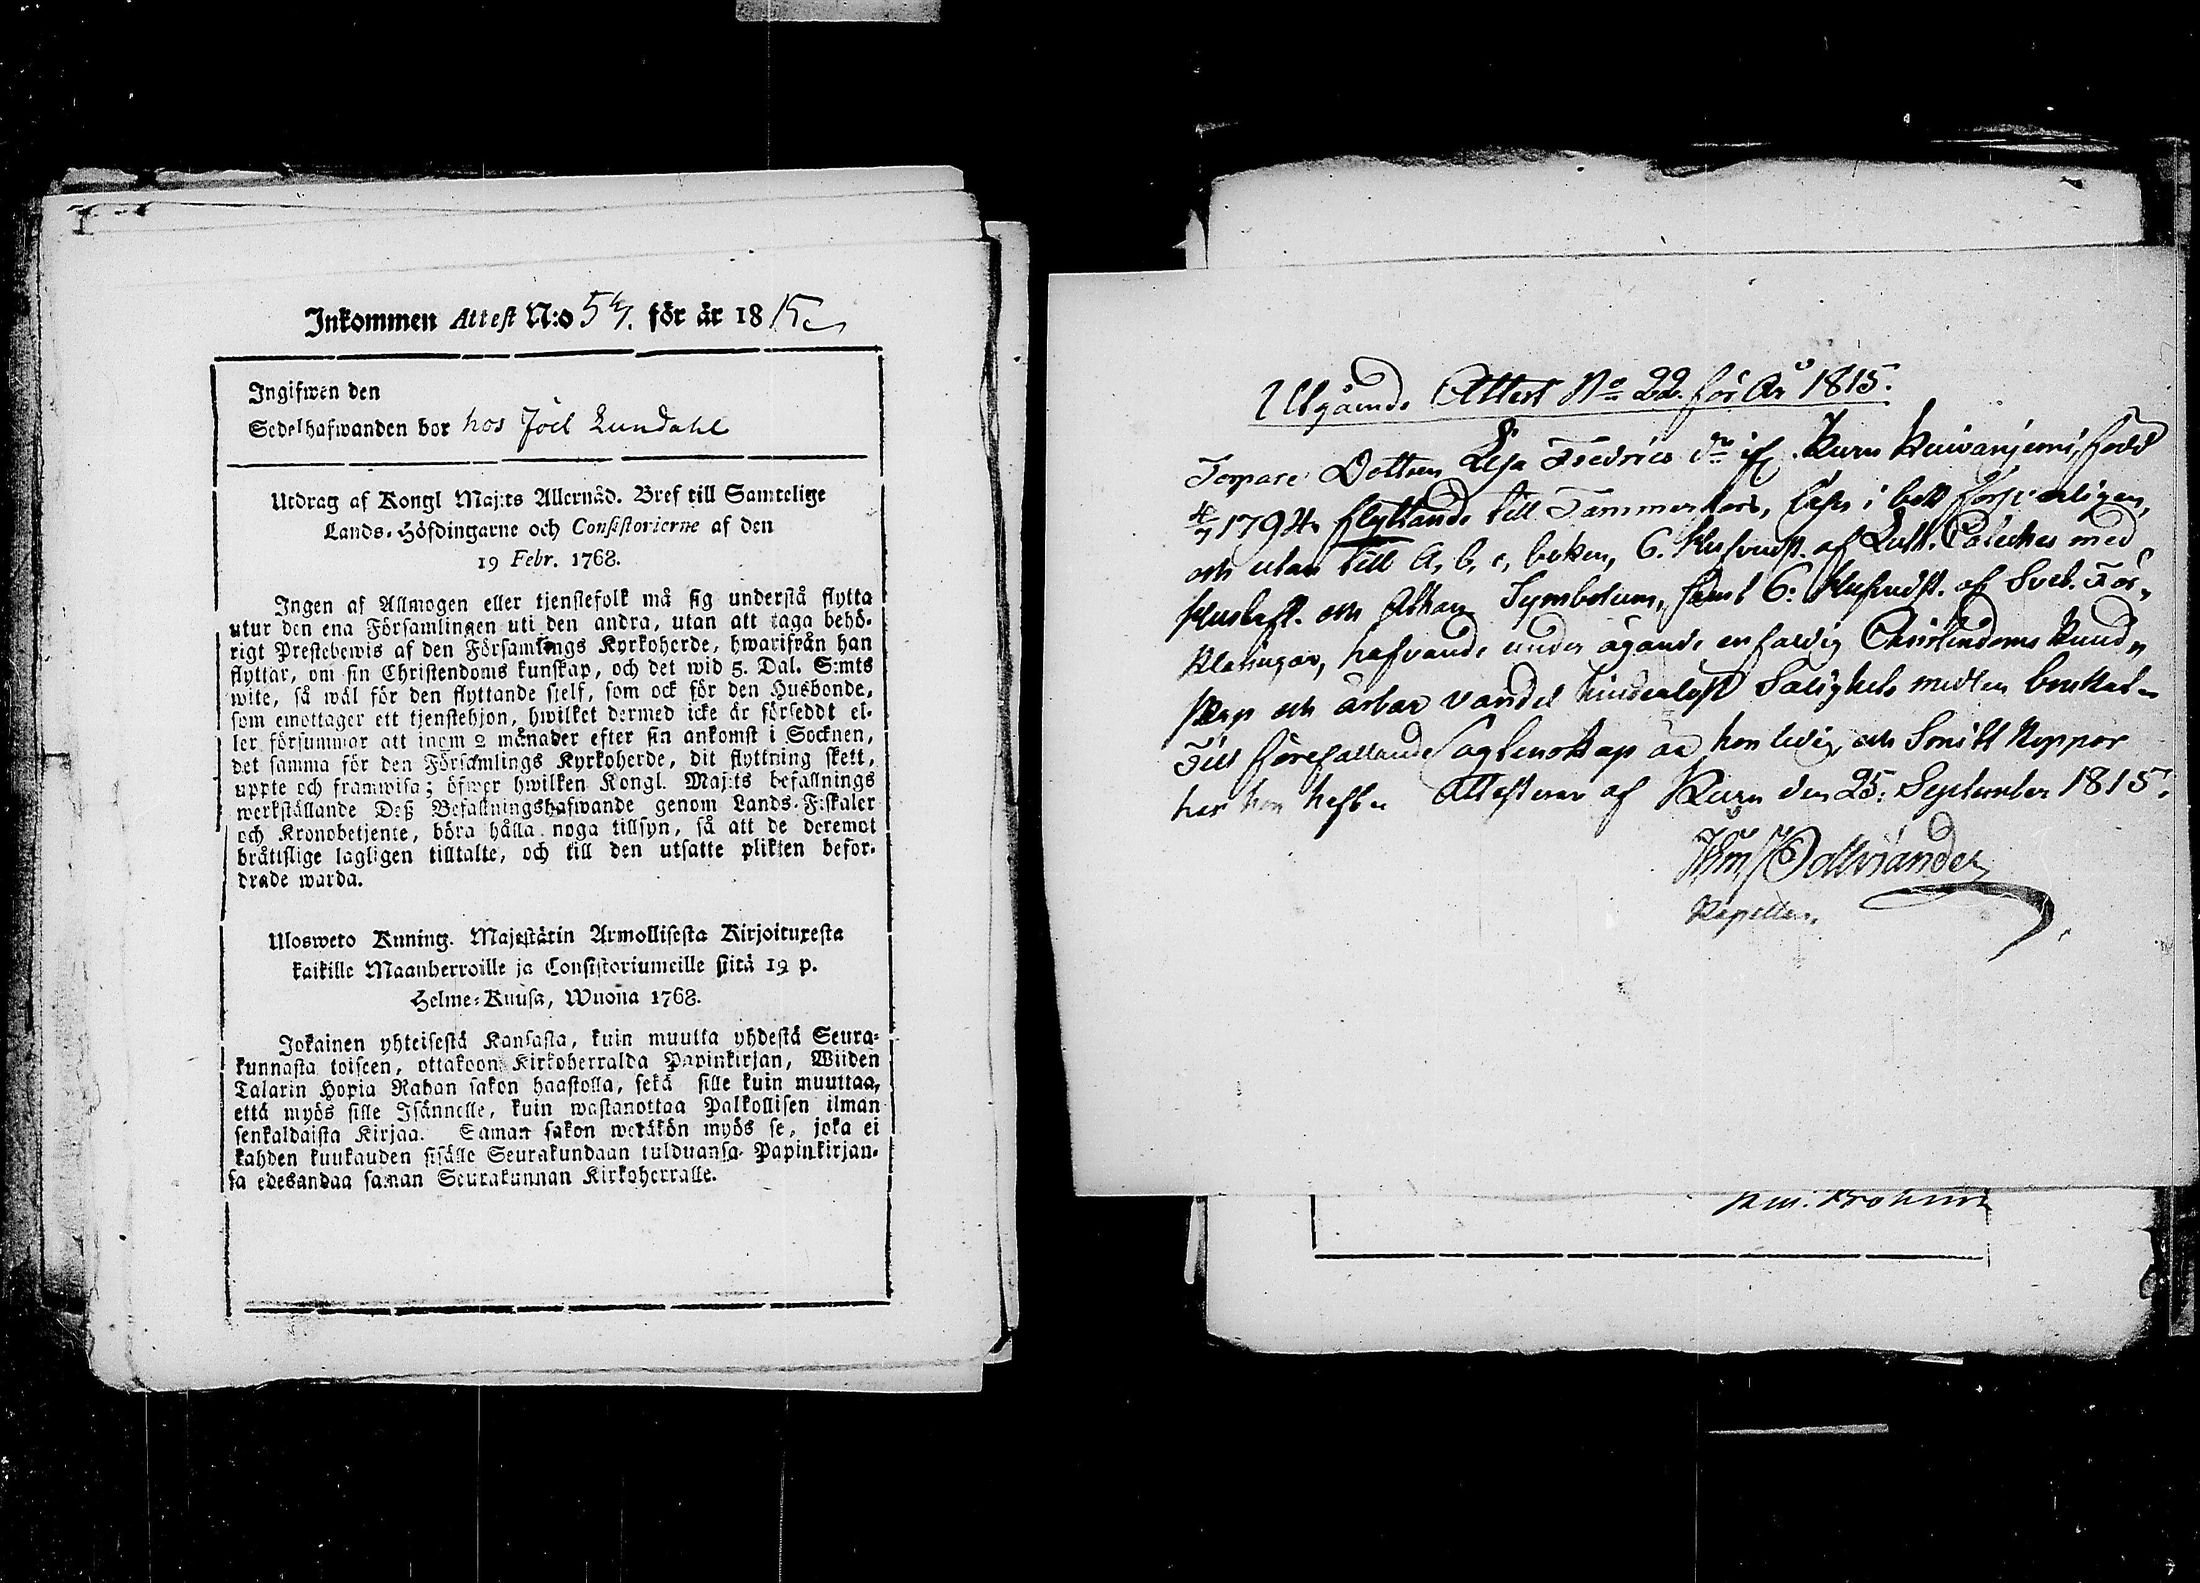 Inkommen Attest N:o 54. för år 1815
Ingifwen den
Sedelhafwanden bor hos Joel Lundahl
Utdrag af Kongl Maj:ts Allernåd. Bref till Samtelige
Lands-Höfdingarne och Consistorierne af den
19 Febr. 1768.
Ingen af Allmogen eller tjenstefolk må sig understå flytta
utur den ena Församlingen uti den andra, utan att taga behö-
rigt Prestebewis af den Församlings Kyrkoherde, hwarifrån han
flyttar, om sin Christendoms kunskap, och det wid 5. Dal. S:mts
wite, så wäl för den flyttande sielf, som ock för den Husbonde,
som emottager ett tjenstehjon, hwilket dermed icke är förseddt el-
ler försummar att inom 2 månader efter sin ankomst i Socknen,
det samma för den Församlings Kyrkoherde, dit flyttning skett,
uppte och framwisa; öfwer hwilken Kongl. Maj:ts befallnings
werkställande Deß Befallningshafwande genom Lands-Fiskaler
och Kronobetjente, böra hålla noga tillsyn, så att de deremot
bråttslige lagligen tilltalte, och till den utsatte plikten befor-
drade warda.
Ulosweto Kuning. Majestätin Armollisesta Kirjoituxesta
kaikille Maanherroille ja Consistoriumeille siitä 19 p.
Helme-Kuusa, Wuona 1768.
Jokainen yhteisestä Kansasta, kuin muutta yhdestä Seura-
kunnasta toiseen, ottakoon Kirkoherralda Papinkirjan, Wiiden
Talarin Hopia Rahan sakon haastolla, sekä sille kuin muuttaa,
että myös sille Isännelle, kuin wastanottaa Palkollisen ilman
senkaldaista Kirjaa. Saman sakon wetäkön myös se, joka ei
kahden kuukauden sisälle Seurakundaan tulduansa Papinkirjan-
sa edesandaa saman Seurakunnan Kirkoherralle.
Utgående Attest No 22. för År 1815.
Torpare Dottren Lisa Fredrics dr if. Kuru Keivanjemi, född
4/7 1794. flyttande till Tammerfors, läser i bok försvarligen,
och utan till A, b, c, boken, 6. Hufvudst. af Luth. Cateches med
Hustafl. och Athan. Symbolum, samt 6. Hufvudst. af Sveb. För-
klaringar, hafvande under ägande enfaldig Christendoms kund-
skap och ärbar vandel hinderlöst Salighets medlen bruckat.
Till förefallande ägtenskap är hon ledig och Smitt Koppor
har hon haft. Attesterar af Kuru den 25. September 1815.
Kapellan.